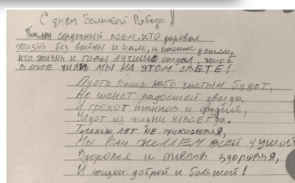 С днем Великой Победы!
Поклон сердечный всем, кто даровал
жизнь без войны и нам, и нашим детям,
кто жизнь и годы лучшие отдал, чтоб
в мире жили мы на этом свете!
Пусть Ваше небо чистым будет,
Не меркнет радостей звезда,
И грохот танков и орудий,
Уйдет из жизни навсегда.
лет не
Мы Вам желаем всей душой
Здоровья и опять здоровья,
И жизни доброй и большой!